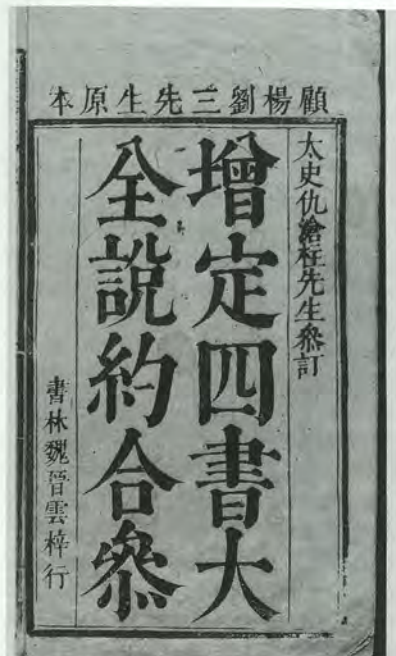 顧楊劉三先生原本
太史仇滄柱先生叅訂
增定四書大
全說約合叅
書林魏晉雲梓行